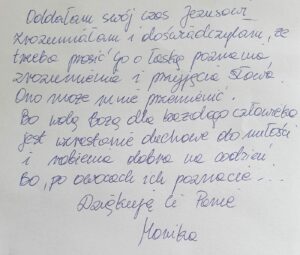 Oddałam swój czas Jezusowi
Zrozumiałam i doświadczyłam, że
trzeba prosić Go o łaskę poznania,
zrozumienia i przyjęcia Słowa
Ono może mnie przemienić.
Bo wolą Bożą dla każdego człowieka
jest wzrastanie duchowe do miłości
i robienia dobra na codzień
Bo „po owocach ich poznacie...
Dziękuję Ci Panie
Monika